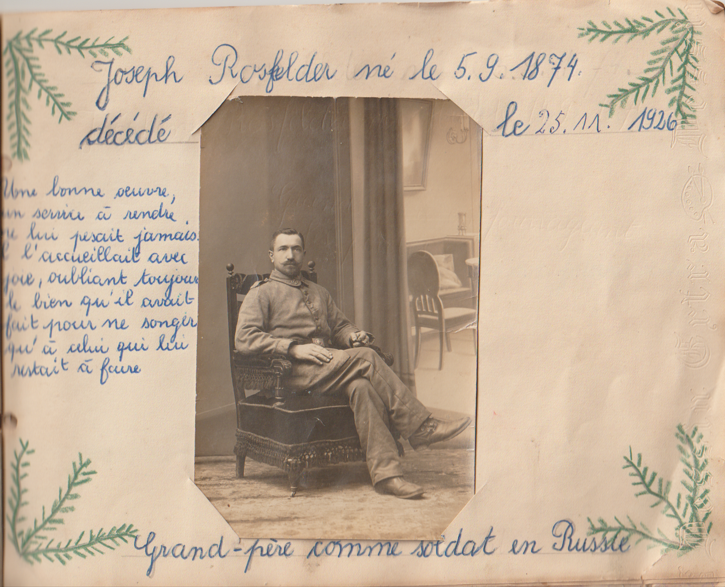 Joseph Rosfelder né le 5.9.1874.
décédé le 25.11.1926
Une bonne oeuvre,
un service à rendre
ne lui pesait jamais.
l l'accueillait avec
joie, oubliant toujours
le bien qu'il avait
fait pour ne songer
qu'à celui qui lui
restait à faire
Grand-père comme soldat en Russie